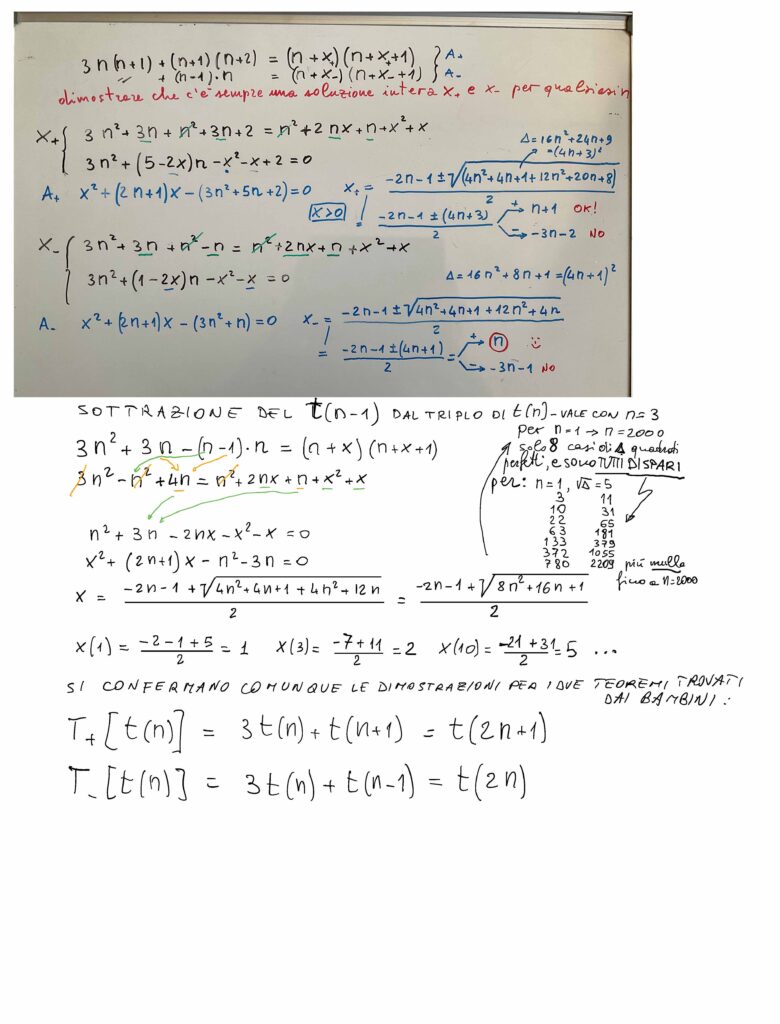 3n(n+1) + (n+1)(n+2) = (n+x₊)(n+x₊+1) } A₊
〃 + (n-1)·n = (n+x₋)(n+x₋+1) } A₋
dimostrare che c'è sempre una soluzione intera x₊ e x₋ per qualsiasi n
X₊ { 3n²+3n+n²+3n+2 = n²+2nx+n+x²+x
3n²+(5-2x)n-x²-x+2=0
Δ=16n²+24n+9
=(4n+3)²
A₊ x²+(2n+1)x-(3n²+5n+2)=0 x₊ = (-2n-1±√(4n²+4n+1+12n²+20n+8))/2
x>0
= (-2n-1±(4n+3))/2 + → n+1 OK!
- → -3n-2 NO
X₋ { 3n²+3n+n²-n = n²+2nx+n+x²+x
3n²+(1-2x)n-x²-x=0
Δ=16n²+8n+1=(4n+1)²
A₋ x²+(2n+1)x-(3n²+n)=0 x₋ = (-2n-1±√(4n²+4n+1+12n²+4n))/2
= (-2n-1±(4n+1))/2 = + → n
- → -3n-1 NO
SOTTRAZIONE DEL t(n-1) DAL TRIPLO DI t(n) - VALE CON n=3
3n²+3n-(n-1)·n = (n+x)(n+x+1)
3n²-n²+4n = n²+2nx+n+x²+x
n²+3n-2nx-x²-x=0
x²+(2n+1)x-n²-3n=0
x = (-2n-1+√(4n²+4n+1+4n²+12n))/2 = (-2n-1+√(8n²+16n+1))/2
per n=1 → n=2000
solo 8 casi di Δ quadrati
perfetti, e sono TUTTI DISPARI
per: n=1, √Δ=5
3 11
10 31
22 65
63 181
133 379
372 1055
780 2209 più nulla
fino a n=2000
x(1) = (-2-1+5)/2 = 1 x(3) = (-7+11)/2 = 2 x(10) = (-21+31)/2 = 5 ...
SI CONFERMANO COMUNQUE LE DIMOSTRAZIONI PER I DUE TEOREMI TROVATI
DAI BAMBINI:
T₊[t(n)] = 3t(n)+t(n+1) = t(2n+1)
T₋[t(n)] = 3t(n)+t(n-1) = t(2n)